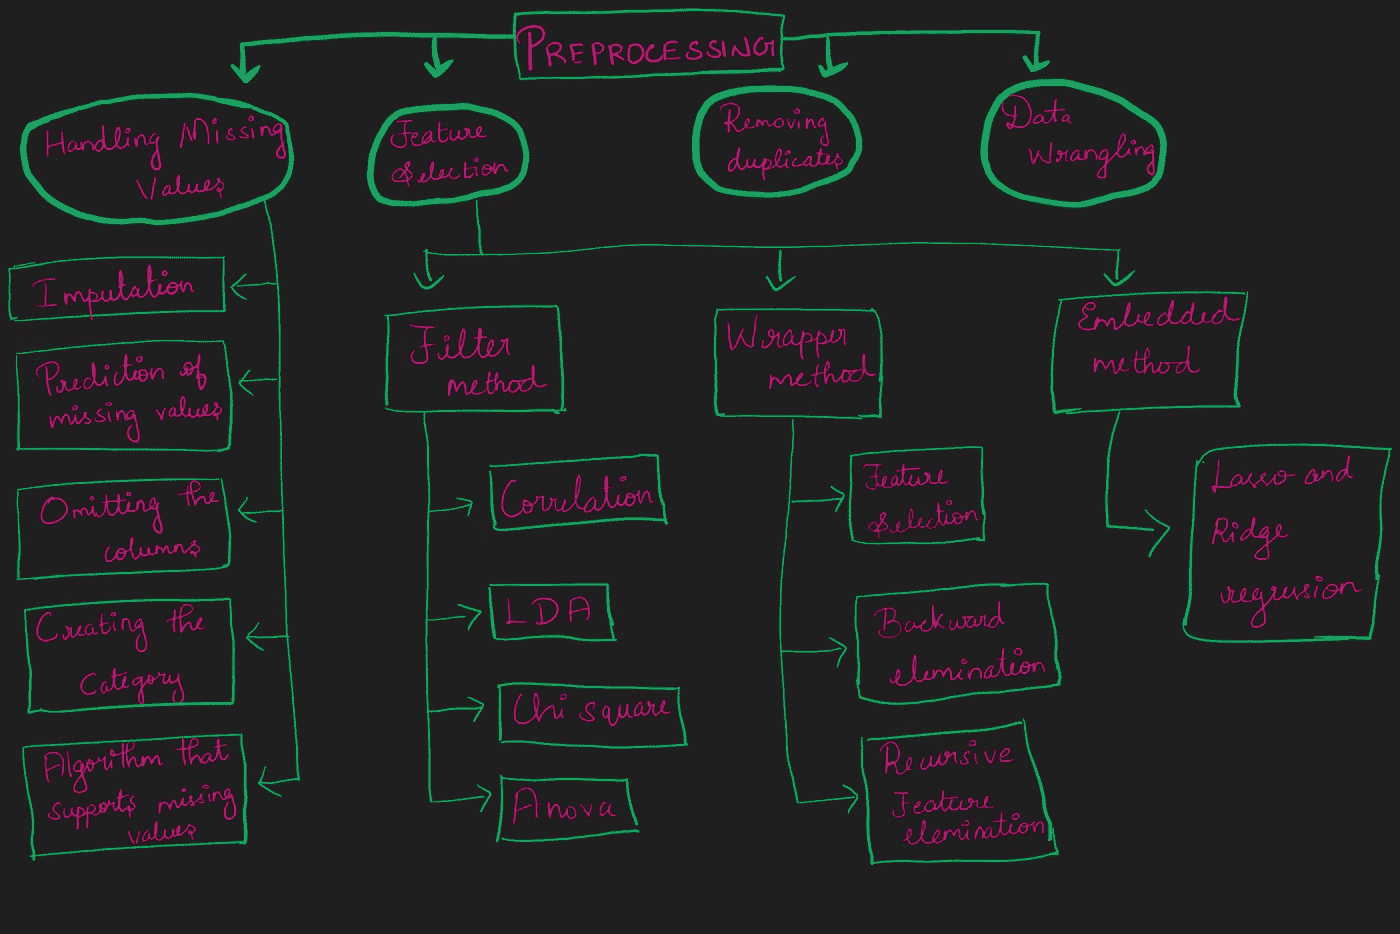 PREPROCESSING
Handling Missing
Values
Feature
Selection
Removing
duplicates
Data
Wrangling
Imputation
Prediction of
missing values
Omitting the
columns
Creating the
Category
Algorithm that
supports missing
values
Filter
method
Correlation
LDA
Chi square
Anova
Wrapper
method
Feature
Selection
Backward
elemination
Recursive
Feature
elemination
Embedded
method
Lasso and
Ridge
regression